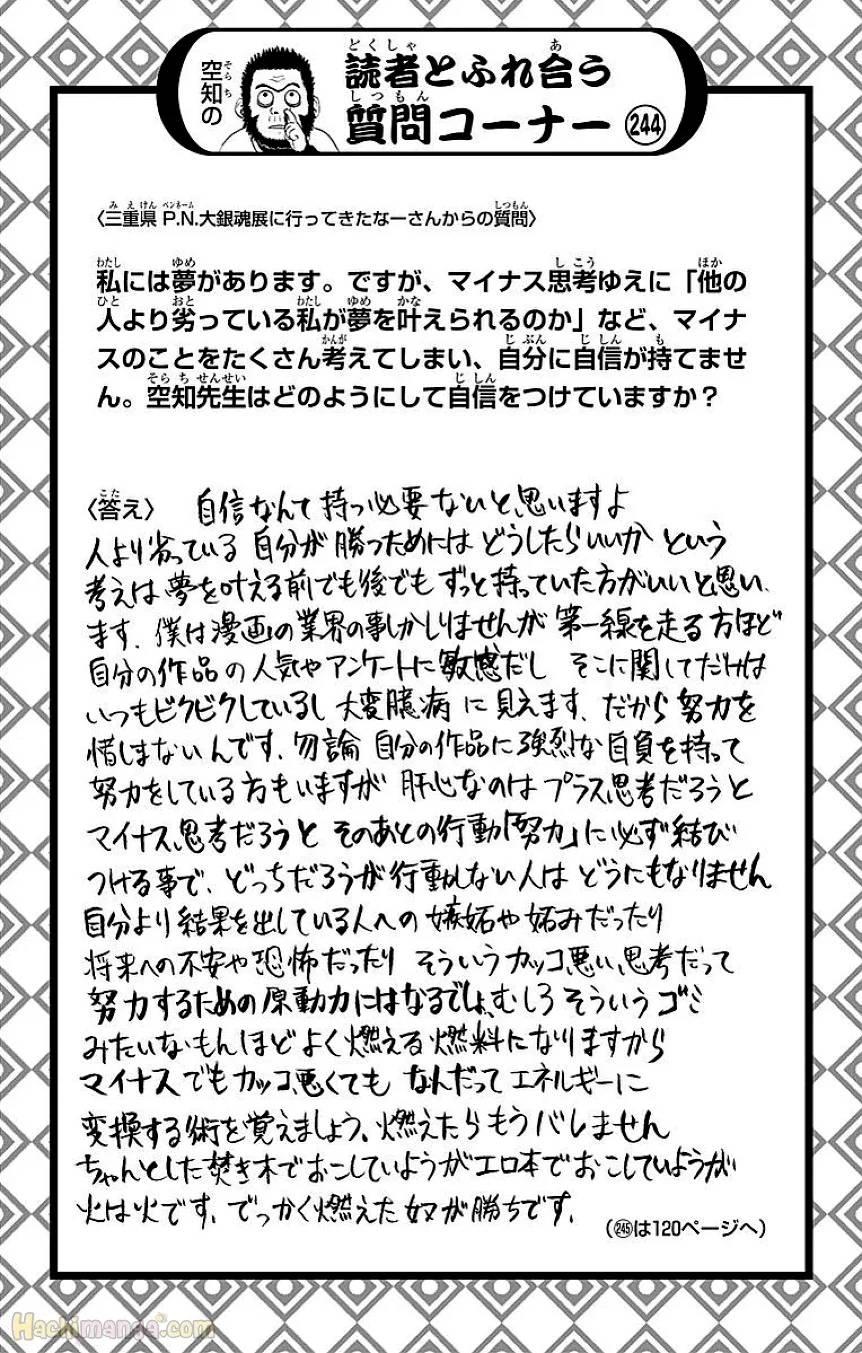 空知の
読者とふれ合う
質問コーナー 244
〈三重県 P.N.大銀魂展に行ってきたなーさんからの質問〉
私には夢があります。ですが、マイナス思考ゆえに「他の
人より劣っている私が夢を叶えられるのか」など、マイナ
スのことをたくさん考えてしまい、自分に自信が持てませ
ん。空知先生はどのようにして自信をつけていますか？
〈答え〉 自信なんて持つ必要ないと思いますよ
人より劣っている 自分が 勝つためには どうしたらいいか という
考えは 夢を叶える前でも後でも ずっと持っていた方がいいと思い
ます. 僕は漫画の業界の事しかしりませんが 第一線を走る方ほど
自分の作品の人気やアンケートに敏感だし そこに関してだけは
いつもビクビクしているし 大変臆病に見えます. だから 努力を
惜しまないんです. 勿論 自分の作品に強烈な自負を持って
努力をしている方もいますが 肝心なのは プラス思考だろうと
マイナス思考だろうと そのあとの行動「努力」に必ず結び
つける事で、どっちだろうが行動しない人は どうにもなりません
自分より結果を出している人への 嫉妬や妬みだったり
将来への不安や恐怖だったり そういうカッコ悪い思考だって
努力するための原動力にはなるでしょ、むしろ そういう ゴミ
みたいなもんほど よく燃える燃料になりますから
マイナスでもカッコ悪くても なんだって エネルギーに
変換する術を覚えましょう、燃えたら もうバレません
ちゃんとした焚き木でおこしていようがエロ本でおこしていようが
火は火です. でっかく燃えた奴が勝ちです.
（245は120ページへ）
Hachimanga.com